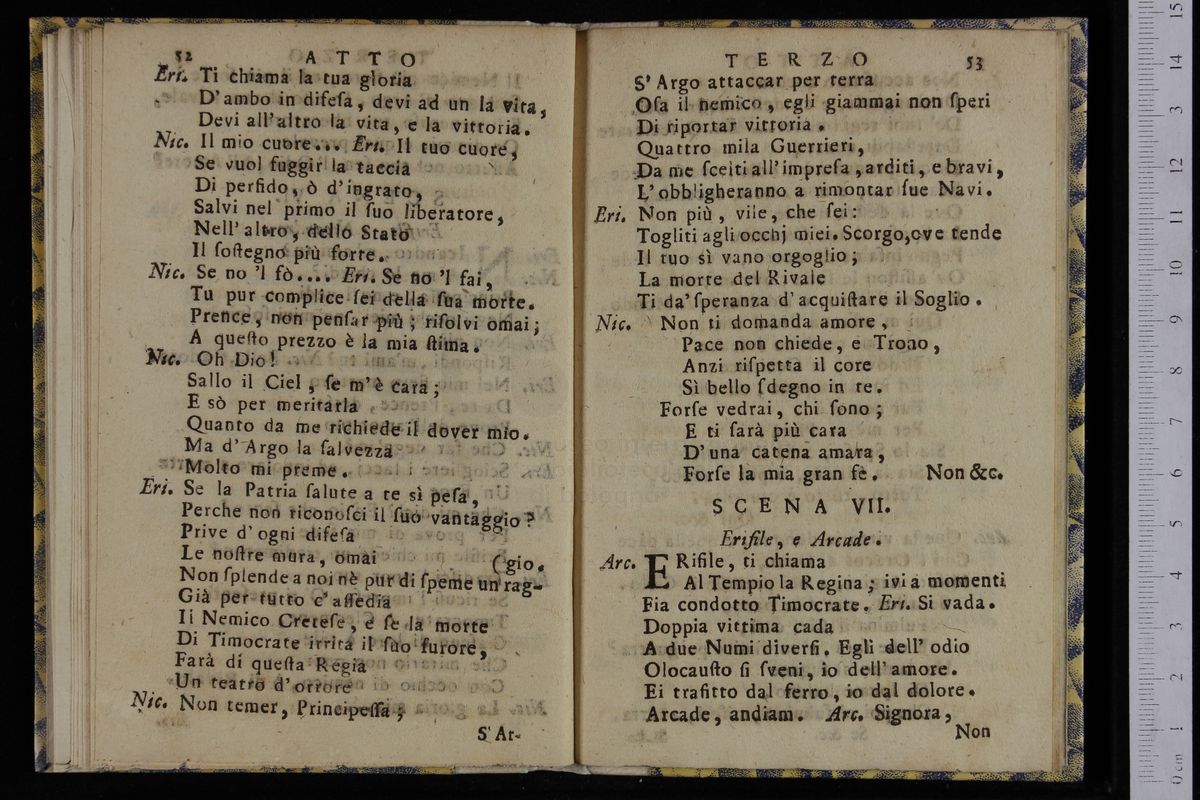 52 ATTO
Eri. Ti chiama la tua gloria
D'ambo in difeſa, devi ad un la vita,
Devi all'altro la vita, e la vittoria.
Nic. Il mio cuore... Eri. Il tuo cuore,
Se vuol fuggir la taccia
Di perfido, ò d'ingrato,
Salvi nel primo il ſuo liberatore,
Nell'altro, dello Stato
Il ſoſtegno più forte.
Nic. Se no 'l fò.... Eri. Se no 'l fai,
Tu pur complice ſei della ſua morte.
Prence, non penſar più; riſolvi omai;
A queſto prezzo è la mia ſtima.
Nic. Oh Dio!
Sallo il Ciel, ſe m'è cara;
E sò per meritarla
Quanto da me richiede il dover mio.
Ma d'Argo la ſalvezza
Molto mi preme.
Eri. Se la Patria ſalute a te sì peſa,
Perche non riconoſci il ſuo vantaggio?
Prive d'ogni difeſa
Le noſtre mura, omai (gio.
Non ſplende a noi nè pur di ſpeme un rag-
Già per tutto c'aſſedia
Il Nemico Creteſe, e ſe la morte
Di Timocrate irrita il ſuo furore,
Farà di queſta Regia
Un teatro d'orrore
Nic. Non temer, Principeſſa;
S'Ar-
TERZO 53
S'Argo attaccar per terra
Oſa il nemico, egli giammai non ſperi
Di riportar vittoria.
Quattro mila Guerrieri,
Da me ſcelti all'impreſa, arditi, e bravi,
L'obbligheranno a rimontar ſue Navi.
Eri. Non più, vile, che ſei:
Togliti agli occhj miei. Scorgo, ove tende
Il tuo sì vano orgoglio;
La morte del Rivale
Ti da' ſperanza d'acquiſtare il Soglio.
Nic. Non ti domanda amore,
Pace non chiede, e Trono,
Anzi riſpetta il core
Sì bello ſdegno in te.
Forſe vedrai, chi ſono;
E ti ſarà più cara
D'una catena amara,
Forſe la mia gran fè. Non &c.
SCENA VII.
Erifile, e Arcade.
Arc. ERifile, ti chiama
Al Tempio la Regina; ivi a momenti
Fia condotto Timocrate. Eri. Si vada.
Doppia vittima cada
A due Numi diverſi. Egli dell'odio
Olocauſto ſi ſveni, io dell'amore.
Ei trafitto dal ferro, io dal dolore.
Arcade, andiam. Arc. Signora,
Non
0 cm 1 2 3 4 5 6 7 8 9 10 11 12 13 14 15